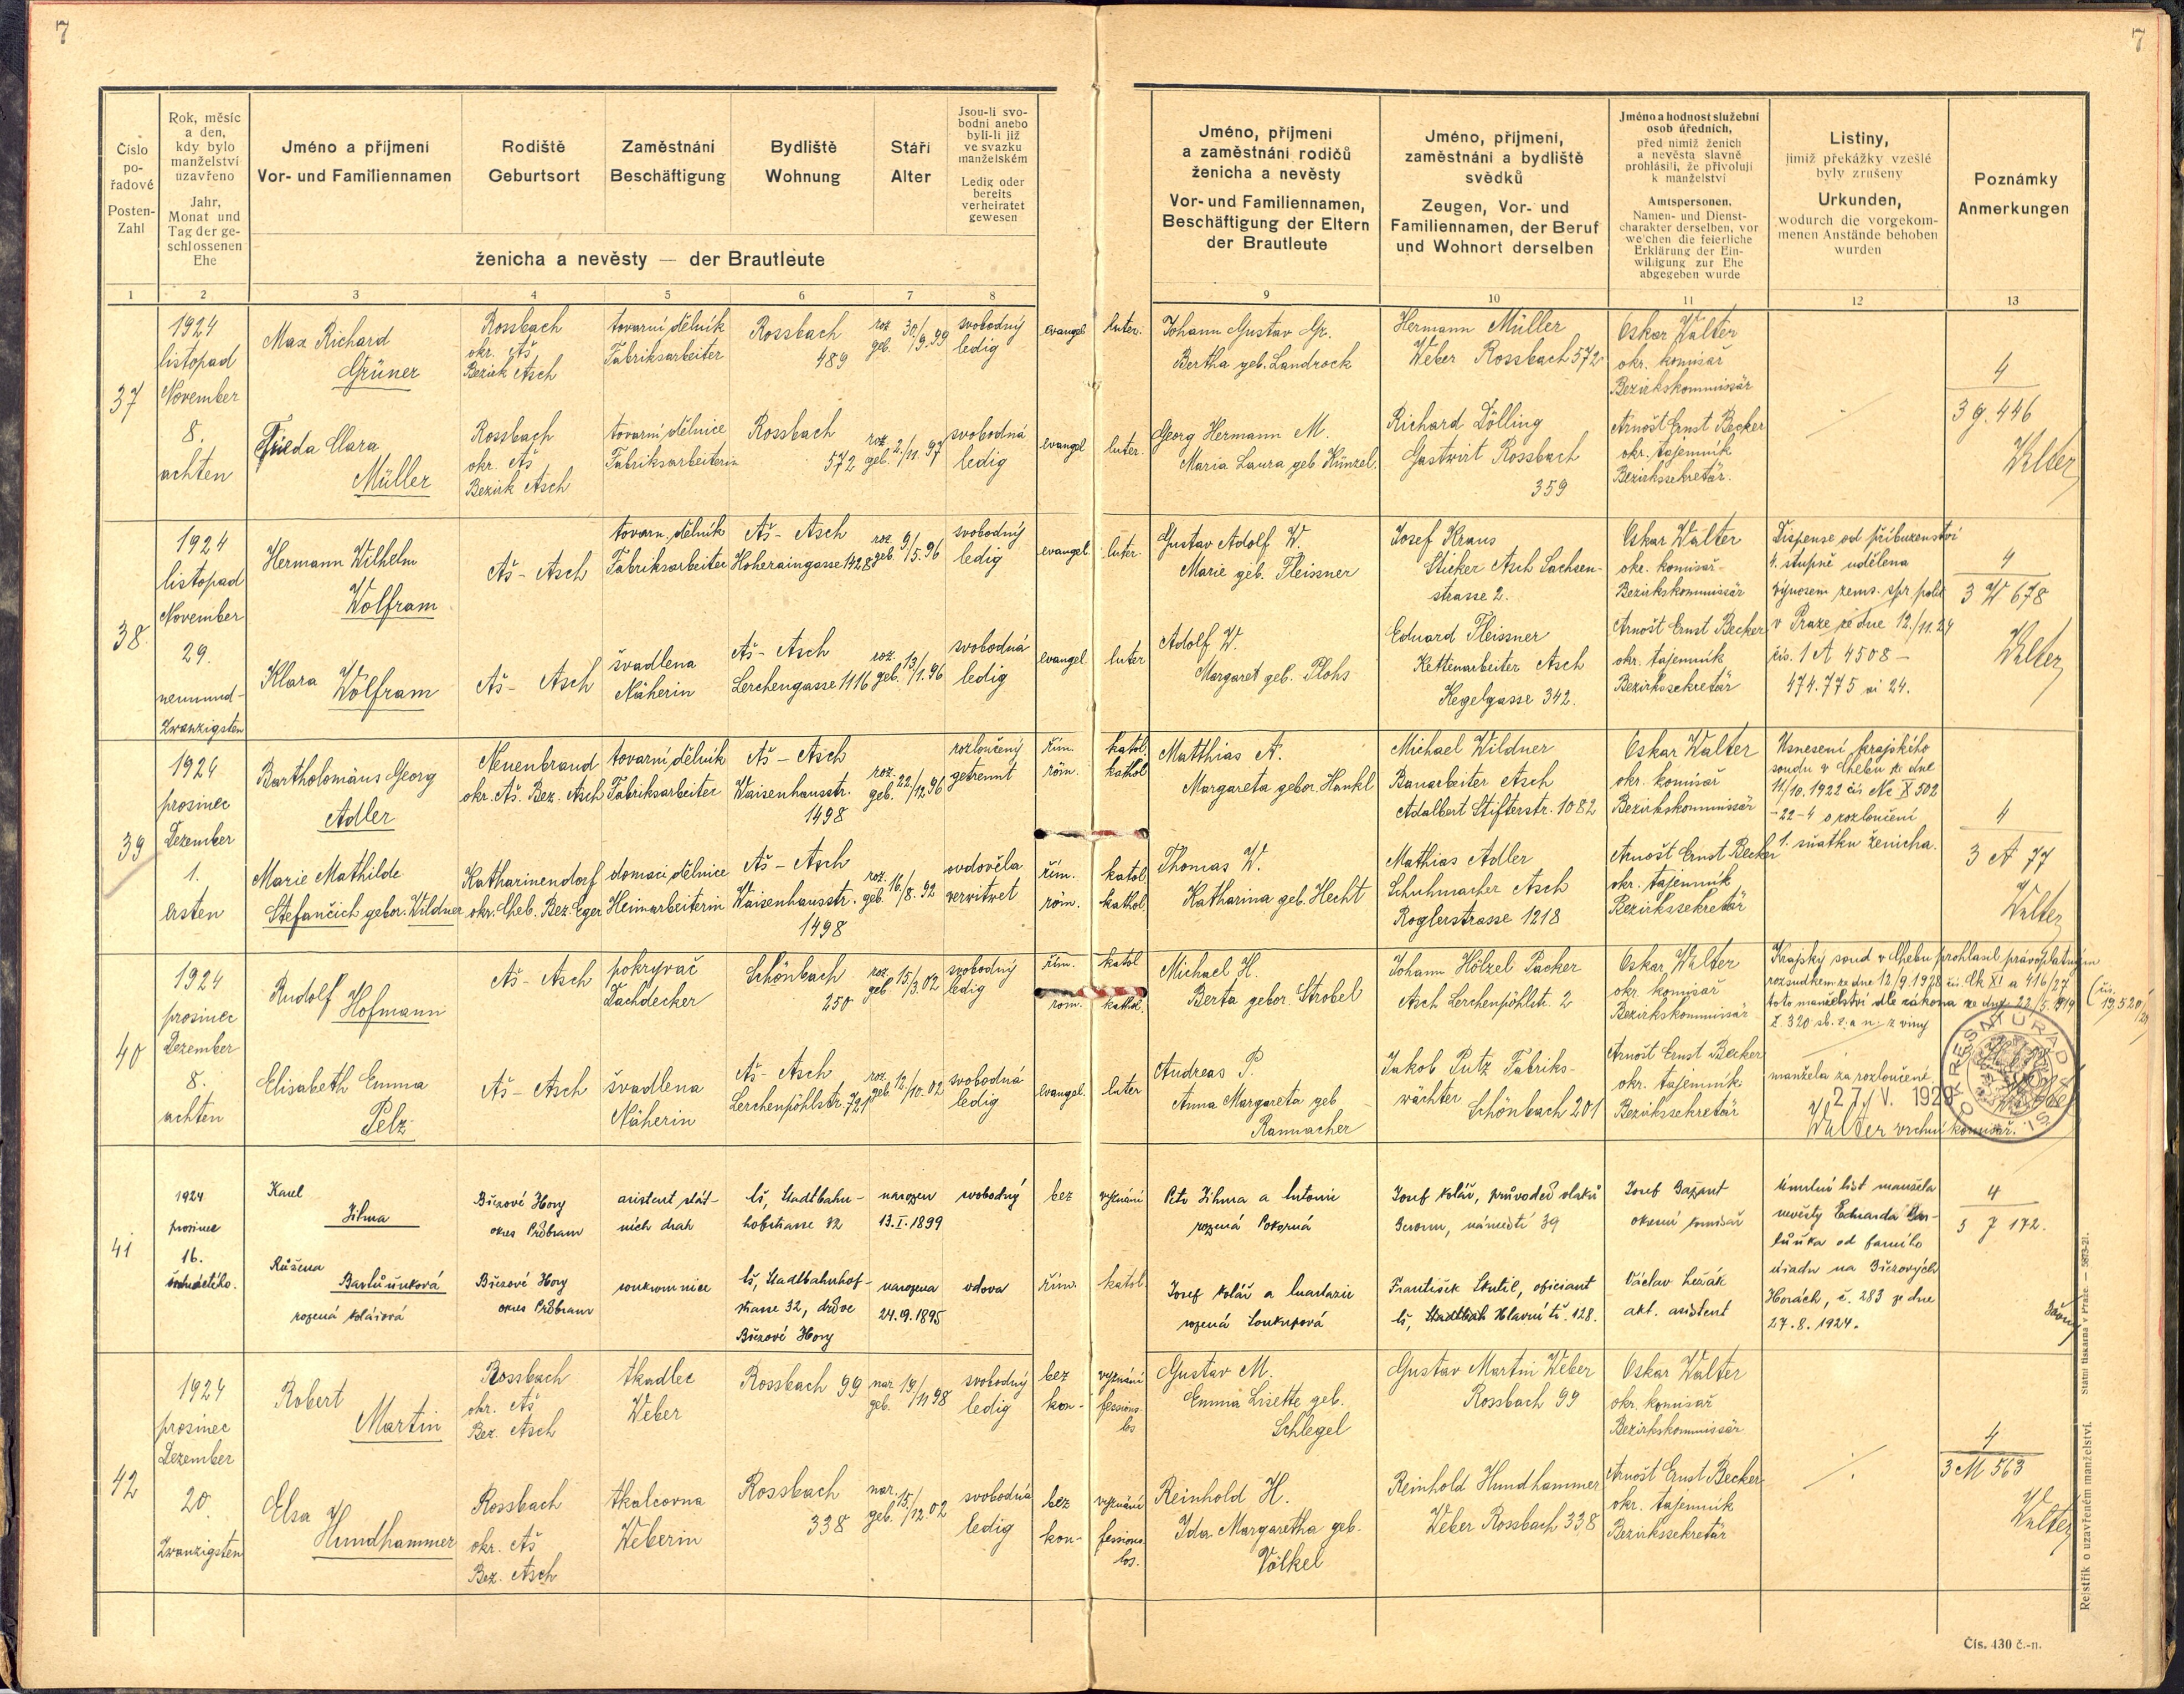 7
7
Číslo
po-
řadové
Posten-
Zahl
Rok, měsíc
a den,
kdy bylo
manželství
uzavřeno
Jahr,
Monat und
Tag der ge-
schlossenen
Ehe
Jméno a přijmení
Vor- und Familiennamen
Rodiště
Geburtsort
Zaměstnání
Beschäftigung
Bydliště
Wohnung
Stáří
Alter
Jsou-li svo-
bodni anebo
byli-li již
ve svazku
manželském
Ledig oder
bereits
verheiratet
gewesen
ženicha a nevěsty — der Brautleute
Jméno, přijmení
a zaměstnání rodičů
ženicha a nevěsty
Vor- und Familiennamen,
Beschäftigung der Eltern
der Brautleute
Jméno, přijmení,
zaměstnání a bydliště
svědků
Zeugen, Vor- und
Familiennamen, der Beruf
und Wohnort derselben
Jméno a hodnost služební
osob úředních,
před nimiž ženich
a nevěsta slavně
prohlásili, že přivolují
k manželství
Amtspersonen,
Namen- und Dienst-
charakter derselben, vor
welchen die feierliche
Erklärung der Ein-
willigung zur Ehe
abgegeben wurde
Listiny,
jimiž překážky vzešlé
byly zrušeny
Urkunden,
wodurch die vorgekom-
menen Anstände behoben
wurden
Poznámky
Anmerkungen
1 2 3 4 5 6 7 8 9 10 11 12 13
37
1924
listopad
November
8.
achten
Max Richard
Grüner
Rossbach
okr. Aš
Bezirk Asch
tovarní dělník
Fabriksarbeiter
Rossbach
489
roz.
geb. 30/9.99
svobodný
ledig
evangel. luter.
Johann Gustav Gr.
Bertha geb. Landrock
Hermann Müller
Weber Rossbach 572
Oskar Walter
okr. komisař
Bezirkskommissär
Frieda Clara
Müller
Rossbach
okr. Aš
Bezirk Asch
tovarní dělnice
Fabriksarbeiterin
Rossbach
572
roz.
geb. 2/11.97
svobodná
ledig
evangel luter.
Georg Hermann M.
Maria Laura geb. Künzel.
Richard Dölling
Gastwirt Rossbach
359
Arnošt Ernst Becker
okr. tajemník
Bezirkssekretär.
4
3 g. 446
Walter
38.
1924
listopad
November
29.
neunund-
zwanzigsten
Hermann Wilhelm
Wolfram
Aš - Asch
tovarn. dělník
Fabriksarbeiter
Aš - Asch
Hoheraingasse 1428
roz.
geb. 9/5.96
svobodný
ledig
evangel. luter.
Gustav Adolf W.
Marie geb. Fleissner
Josef Kraus
Sticker Asch Sachsen-
strasse 2.
Oskar Walter
okr. komisař
Bezirkskommissär
Klara Wolfram
Aš - Asch
švadlena
Näherin
Aš - Asch
Lerchengasse 1116
roz.
geb. 13/1.96
svobodná
ledig
evangel. luter
Adolf W.
Margaret geb. Plohs
Eduard Fleissner
Kettenarbeiter Asch
Kegelgasse 342.
Arnošt Ernst Becker
okr. tajemník
Bezirkssekretär
Dispense od příbuzenství
4. stupně udělena
výnosem zems. spr. polit
v Praze ze dne 12./11.24
čís. 1 A 4508 -
474.775 ai 24.
4
3 W 678
Walter
39
1924
prosinec
Dezember
1.
ersten
Bartholomäus Georg
Adler
Neuenbrand
okr. Aš. Bez. Asch
tovarní dělník
Fabriksarbeiter
Aš - Asch
Waisenhausstr.
1498
roz.
geb. 22/12.96
rozloučený
getrennt
řím. katol.
röm. kathol
Matthias A.
Margareta gebor. Hankl
Michael Wildner
Bauarbeiter Asch
Adalbert Stifterstr. 1082
Oskar Walter
okr. komisař
Bezirkskommissär
Marie Mathilde
Stefančich gebor. Wildner
Katharinendorf
okr. Cheb. Bez. Eger
domaci dělnice
Heimarbeiterin
Aš - Asch
Waisenhausstr.
1498
roz.
geb. 16./8.92
ovdověla
verwitwet
řím. katol
röm. kathol.
Thomas W.
Katharina geb. Hecht
Mathias Adler
Schuhmacher Asch
Roglerstrasse 1218
Arnošt Ernst Becker
okr. tajemník
Bezirkssekretär
Usnesení krajského
soudu v Chebu ze dne
11/10.1922 čís Nc X 502
-22-4 o rozloučení
1. sňatku ženicha.
4
3 A 77
Walter
40
1924
prosinec
Dezember
8.
achten
Rudolf Hofmann
Aš - Asch
pokryvač
Dachdecker
Schönbach
250
roz.
geb. 15/3.02
svobodný
ledig
řím. katol
röm. kathol.
Michael H.
Berta gebor. Strobel
Johann Hölzel Packer
Asch Lerchenpöhlstr. 2
Oskar Walter
okr. komisař
Bezirkskommissär
Elisabeth Emma
Pelz
Aš - Asch
švadlena
Näherin
Aš - Asch
Lerchenpöhlstr. 721
roz.
geb. 12./10.02
svobodná
ledig
evangel. luter
Andreas P.
Anna Margareta geb
Rannacher
Jakob Putz Fabriks-
wächter
Schönbach 201
Arnošt Ernst Becker
okr. tajemník
Bezirkssekretär
Krajský soud v Chebu prohlasil právoplatným
rozsudkem ze dne 12/9.1928 čís. Ck XI a 416/27
toto manželství dle zákona ze dne 22/5.1919
č. 320 sb. z. a n. z viny
manžela za rozloučené
27. IV. 1929
Walter vrchní komisař.
41
1924
prosinec
16.
šestnáctého.
Karel
Jihma
Březové Hory
okres Příbram
asistent stát-
ních drah
Aš, Stadtbahn-
hofstrasse 32
narozen
13.I.1899
svobodný
bez vyznání
Petr Jihma a Antonie
rozená Pokorná
Josef Kolář, průvodčí vlaků
Beroun, náměstí 39
Josef Bažant
okresní komisař
Růžena
Bartůňková
rozená Kolářová
Březové Hory
okres Příbram
soukromnice
Aš, Stadtbahnhof-
strasse 32, dříve
Březové Hory
narozena
24.9.1895
vdova
řím. katol.
Josef Kolář a Anastazie
rozená Soukupová
František Skutil, oficiant
Aš, Hlavní tř. 128.
Václav Ležák
akt. asistent
Úmrtní list manžela
nevěsty Eduarda Bar-
tůňka od farního
úřadu na Březových
Horách, č. 283 ze dne
27.8.1924.
4
3 J 172.
42
1924
prosinec
Dezember
20.
Zwanzigsten
Robert
Martin
Rossbach
okr. Aš
Bez. Asch
tkadlec
Weber
Rossbach 99
nar.
geb. 19/11 98
svobodný
ledig
bez vyznání
kon- fessions-
los
Gustav M.
Emma Lisette geb.
Schlegel
Gustav Martin Weber
Rossbach 99
Oskar Walter
okr. komisař
Bezirkskommissär
Elsa
Hundhammer
Rossbach
okr. Aš
Bez. Asch
tkalcovna
Weberin
Rossbach
338
nar.
geb. 15./12.02
svobodná
ledig
bez vyznání
kon- fessions-
los.
Reinhold H.
Ida Margaretha geb.
Völkel
Reinhold Hundhammer
Weber Rossbach 338
Arnošt Ernst Becker
okr. tajemník
Bezirkssekretär
4
3 M 563
Walter
Rejstřík o uzavřeném manželství. Státní tiskárna v Praze — 5873-21.
Čís. 430 č.-n.